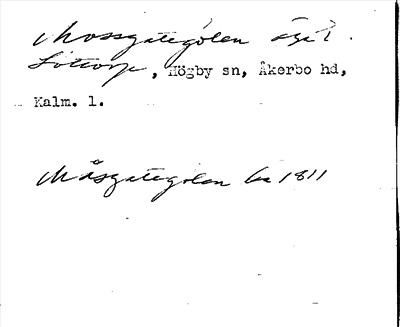 Mossgategölen äga i
Löttorp, Högby sn, Åkerbo hd,
Kalm. l.
Måsgategölen ba 1811